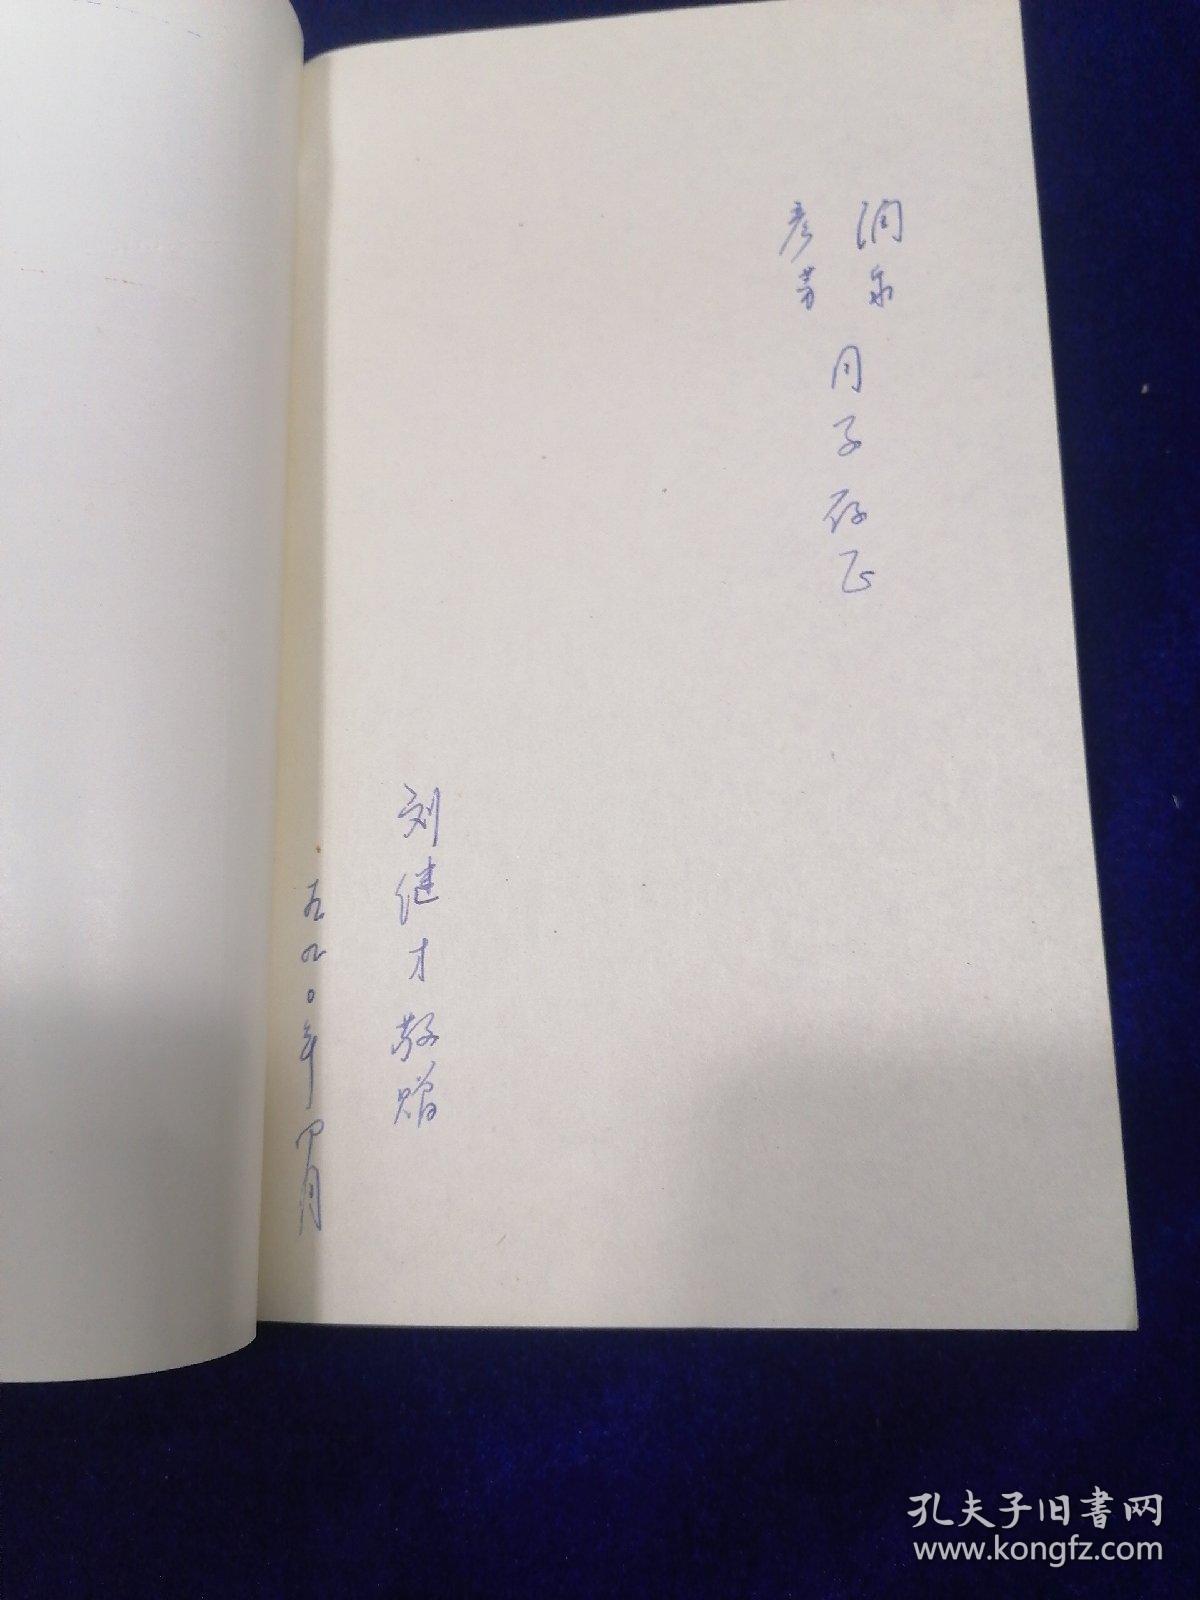 润
彦芳
存正
刘继才敬赠
九〇年四月
孔夫子旧書网
www.kongfz.com